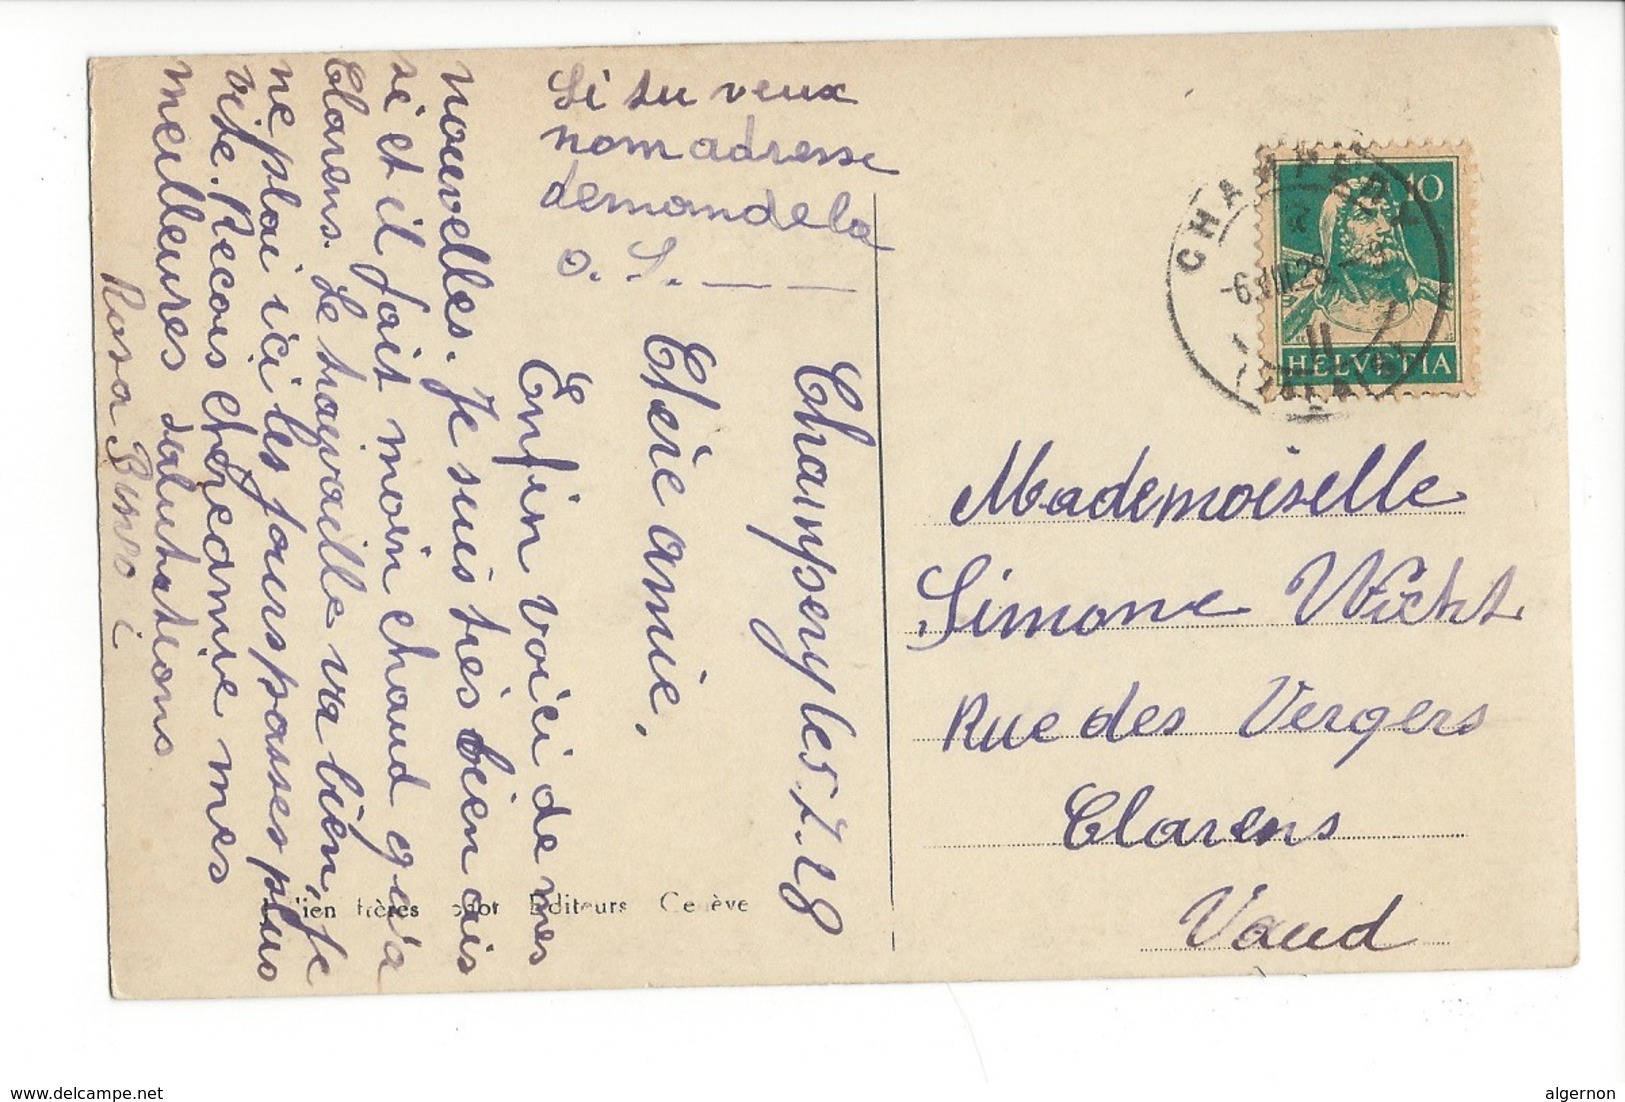 Si tu veux
nom adresse
demande la
Champery le 5.7.28
Chère amie,
Enfin voici de mes
nouvelles. Je suis très bien ais
si et il fait moin chaud qu'a
Clarens. Le travaille va bien, je
ne plai ici les jours passes plus
vite. Recois chère amie mes
meilleures salutations
Rosa
Mademoiselle
Simone Wicht
Rue des Vergers
Clarens
Vaud
10
HELVETIA
CHAMPERY
frères Editeurs Genève
www.delcampe.net
algernon